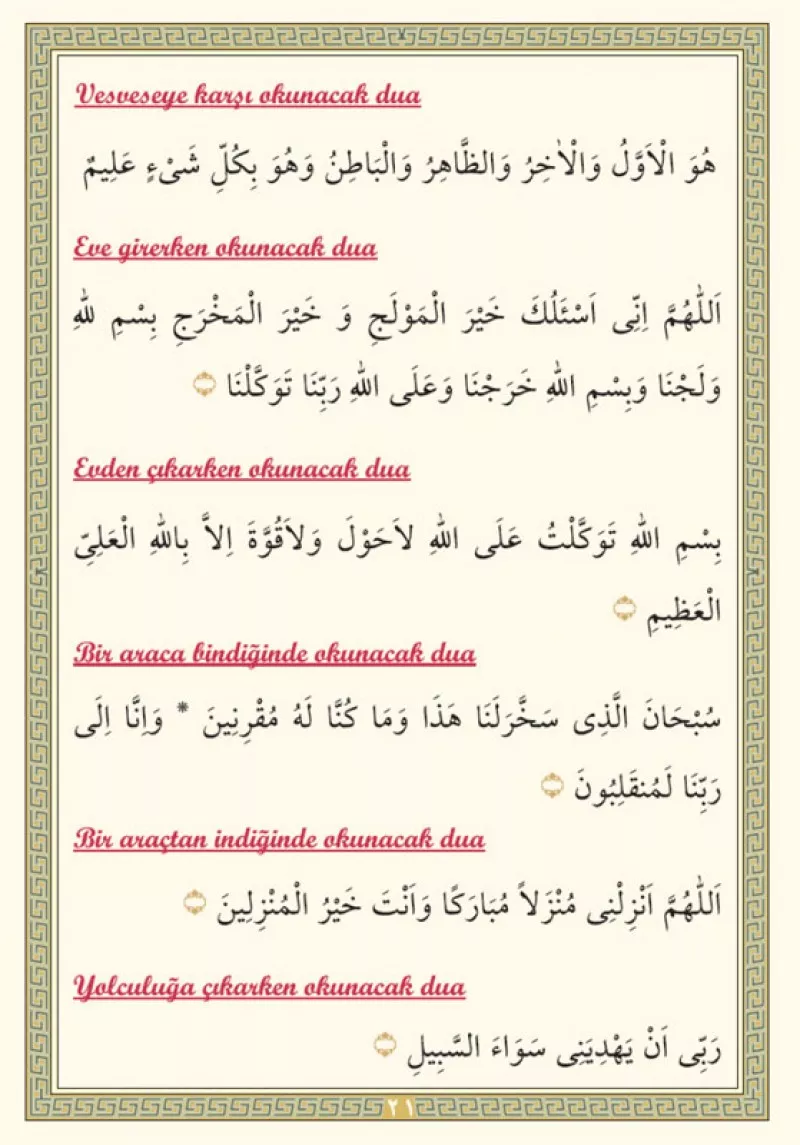 Vesveseye karşı okunacak dua
هُوَ الْاَوَّلُ وَالْاٰخِرُ وَالظَّاهِرُ وَالْبَاطِنُ وَهُوَ بِكُلِّ شَىْءٍ عَلِيمٌ
Eve girerken okunacak dua
اَللّٰهُمَّ اِنِّى اَسْئَلُكَ خَيْرَ الْمَوْلَجِ وَ خَيْرَ الْمَخْرَجِ بِسْمِ للهِ
وَلَجْنَا وَبِسْمِ اللهِ خَرَجْنَا وَعَلَى اللهِ رَبِّنَا تَوَكَّلْنَا
Evden çıkarken okunacak dua
بِسْمِ اللهِ تَوَكَّلْتُ عَلَى اللهِ لاَحَوْلَ وَلاَقُوَّةَ اِلاَّ بِاللهِ الْعَلِىِّ
الْعَظِيمِ
Bir araca bindiğinde okunacak dua
سُبْحَانَ الَّذِى سَخَّرَلَنَا هَذَا وَمَا كُنَّا لَهُ مُقْرِنِينَ * وَاِنَّا اِلَى
رَبِّنَا لَمُنقَلِبُونَ
Bir araçtan indiğinde okunacak dua
اَللّٰهُمَّ اَنْزِلْنِى مُنْزَلاً مُبَارَكًا وَاَنْتَ خَيْرُ الْمُنْزِلِينَ
Yolculuğa çıkarken okunacak dua
رَبِّى اَنْ يَهْدِيَنِى سَوَاءَ السَّبِيلِ
٢١